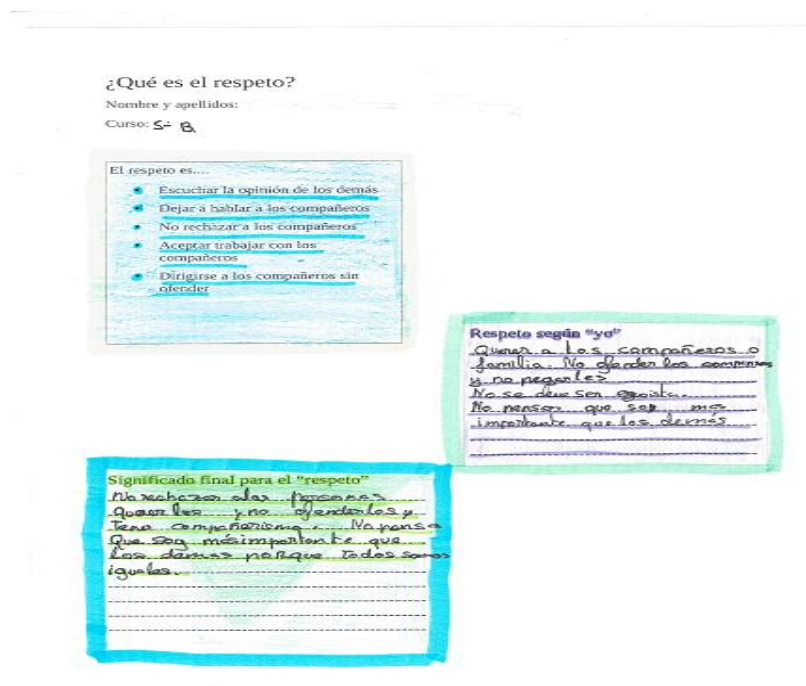 ¿Qué es el respeto?
Nombre y apellidos:
Curso: 5º B.
El respeto es....
• Escuchar la opinión de los demás
• Dejar a hablar a los compañeros
• No rechazar a los compañeros
• Aceptar trabajar con los
compañeros
• Dirigirse a los compañeros sin
ofender
Respeto según "yo"
Querer a los compañeros o
familia. No ofender los
y no pegarles
No se deve ser egoista.
No pensar que soy más
importante que los demás
Significado final para el "respeto"
No rechazar a las personas
querer les y no ofenderlos y
Tener compañerismo. No pensa
Que soy más importante que
los demas porque todos somos
iguales.